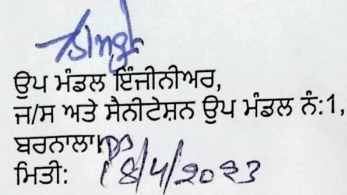 ਉਪ ਮੰਡਲ ਇੰਜੀਨੀਅਰ,
ਜ/ਸ ਅਤੇ ਸੈਨੀਟੇਸ਼ਨ ਉਪ ਮੰਡਲ ਨੰ:1,
ਬਰਨਾਲਾ।
ਮਿਤੀ: 18/4/2023